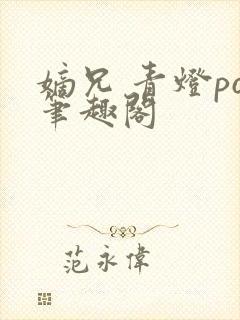 嫡兄 青燈po
筆趣閣
范永偉